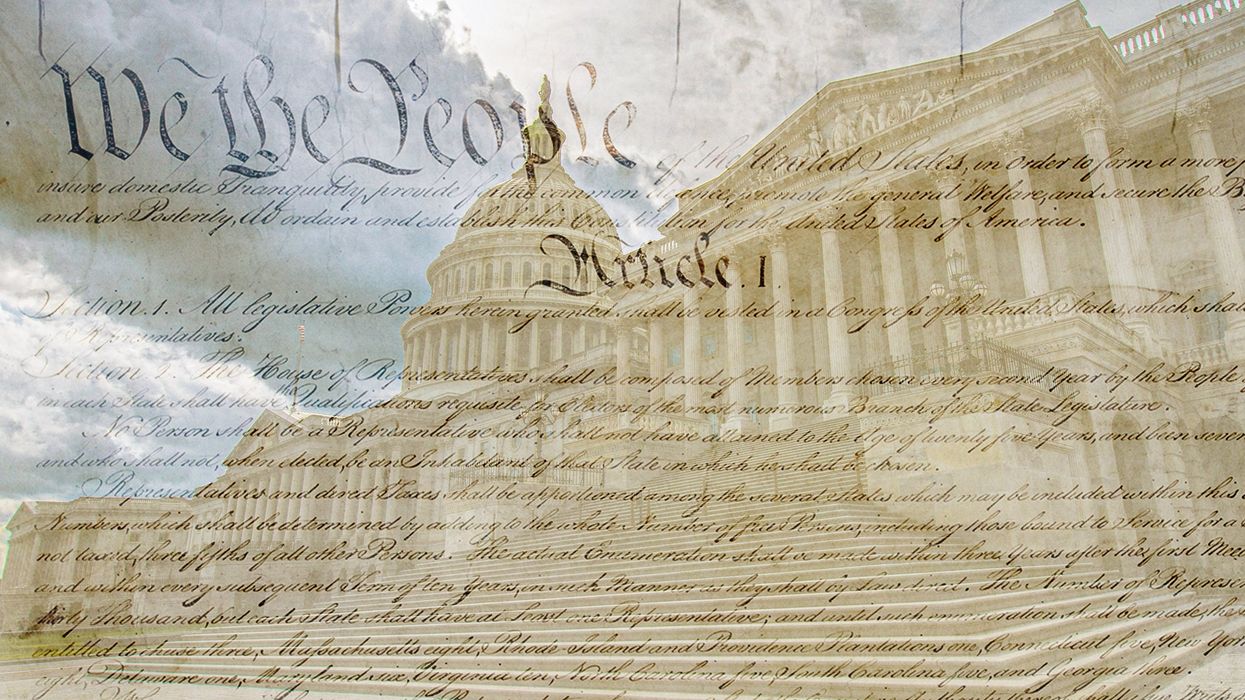 We the People of the United States, in order to form a more
insure domestic Tranquility, provide for the common defence, promote the general Welfare, and secure the
and our Posterity, do ordain and establish this Constitution for the United States of America.
Article. I.
Section. 1. All legislative Powers herein granted shall be vested in a Congress of the United States, which shall
of Representatives.
Section. 2. The House of Representatives shall be composed of Members chosen every second Year by the People
in each State shall have the Qualifications requisite for Electors of the most numerous Branch of the State Legislature.
No Person shall be a Representative who shall not have attained to the Age of twenty five Years, and been seven
and who shall not, when elected, be an Inhabitant of that State in which he shall be chosen.
Representatives and direct Taxes shall be apportioned among the several States which may be included within this
Numbers, which shall be determined by adding to the whole Number of free Persons, including those bound to Service for a
not taxed, three fifths of all other Persons. The actual Enumeration shall be made within three Years after the first Meet
and within every subsequent Term of ten Years, in such Manner as they shall by Law direct. The Number of Represen
thirty Thousand, but each State shall have at Least one Representative; and until such enumeration shall be made, the
entitled to chuse three, Massachusetts eight, Rhode-Island and Providence Plantations one, Connecticut five, New York
eight, Delaware one, Maryland six, Virginia ten, North Carolina five, South Carolina five, and Georgia three.